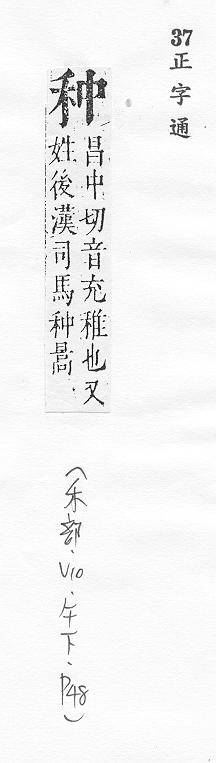 37
正字通
种
昌中切音充稚也又
姓後漢司馬种暠
（禾部．V10．午下．P48）